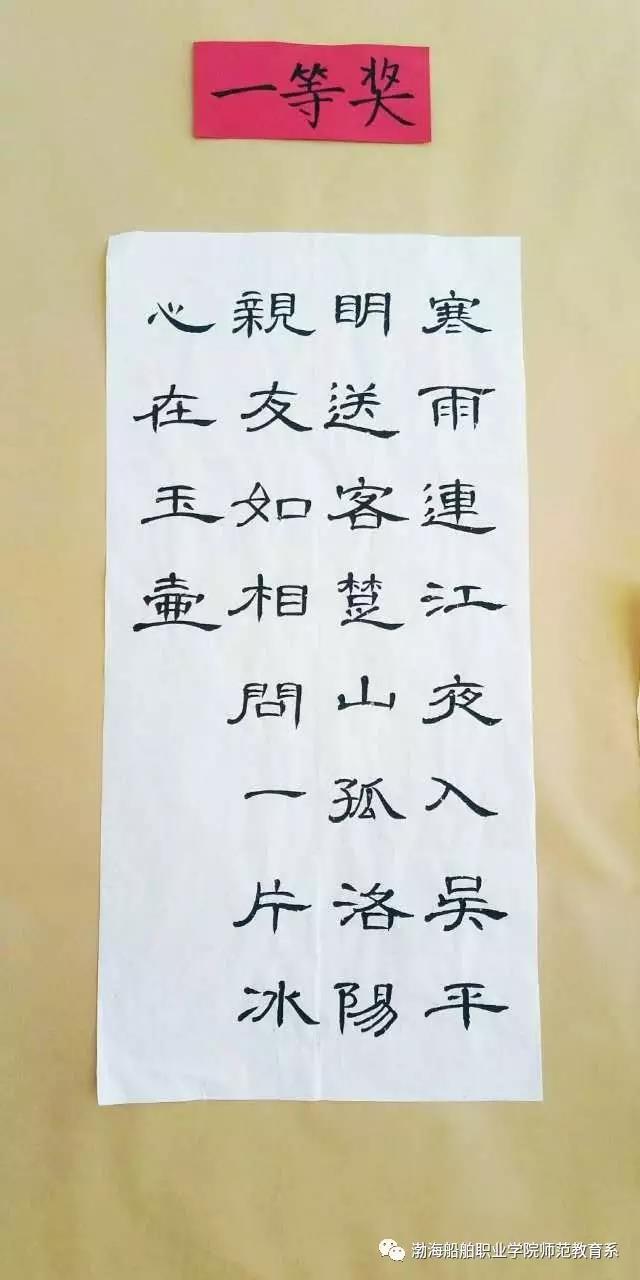 一等奖
寒雨連江夜入吴平
明送客楚山孤洛陽
親友如相問一片冰
心在玉壺
渤海船舶职业学院师范教育系